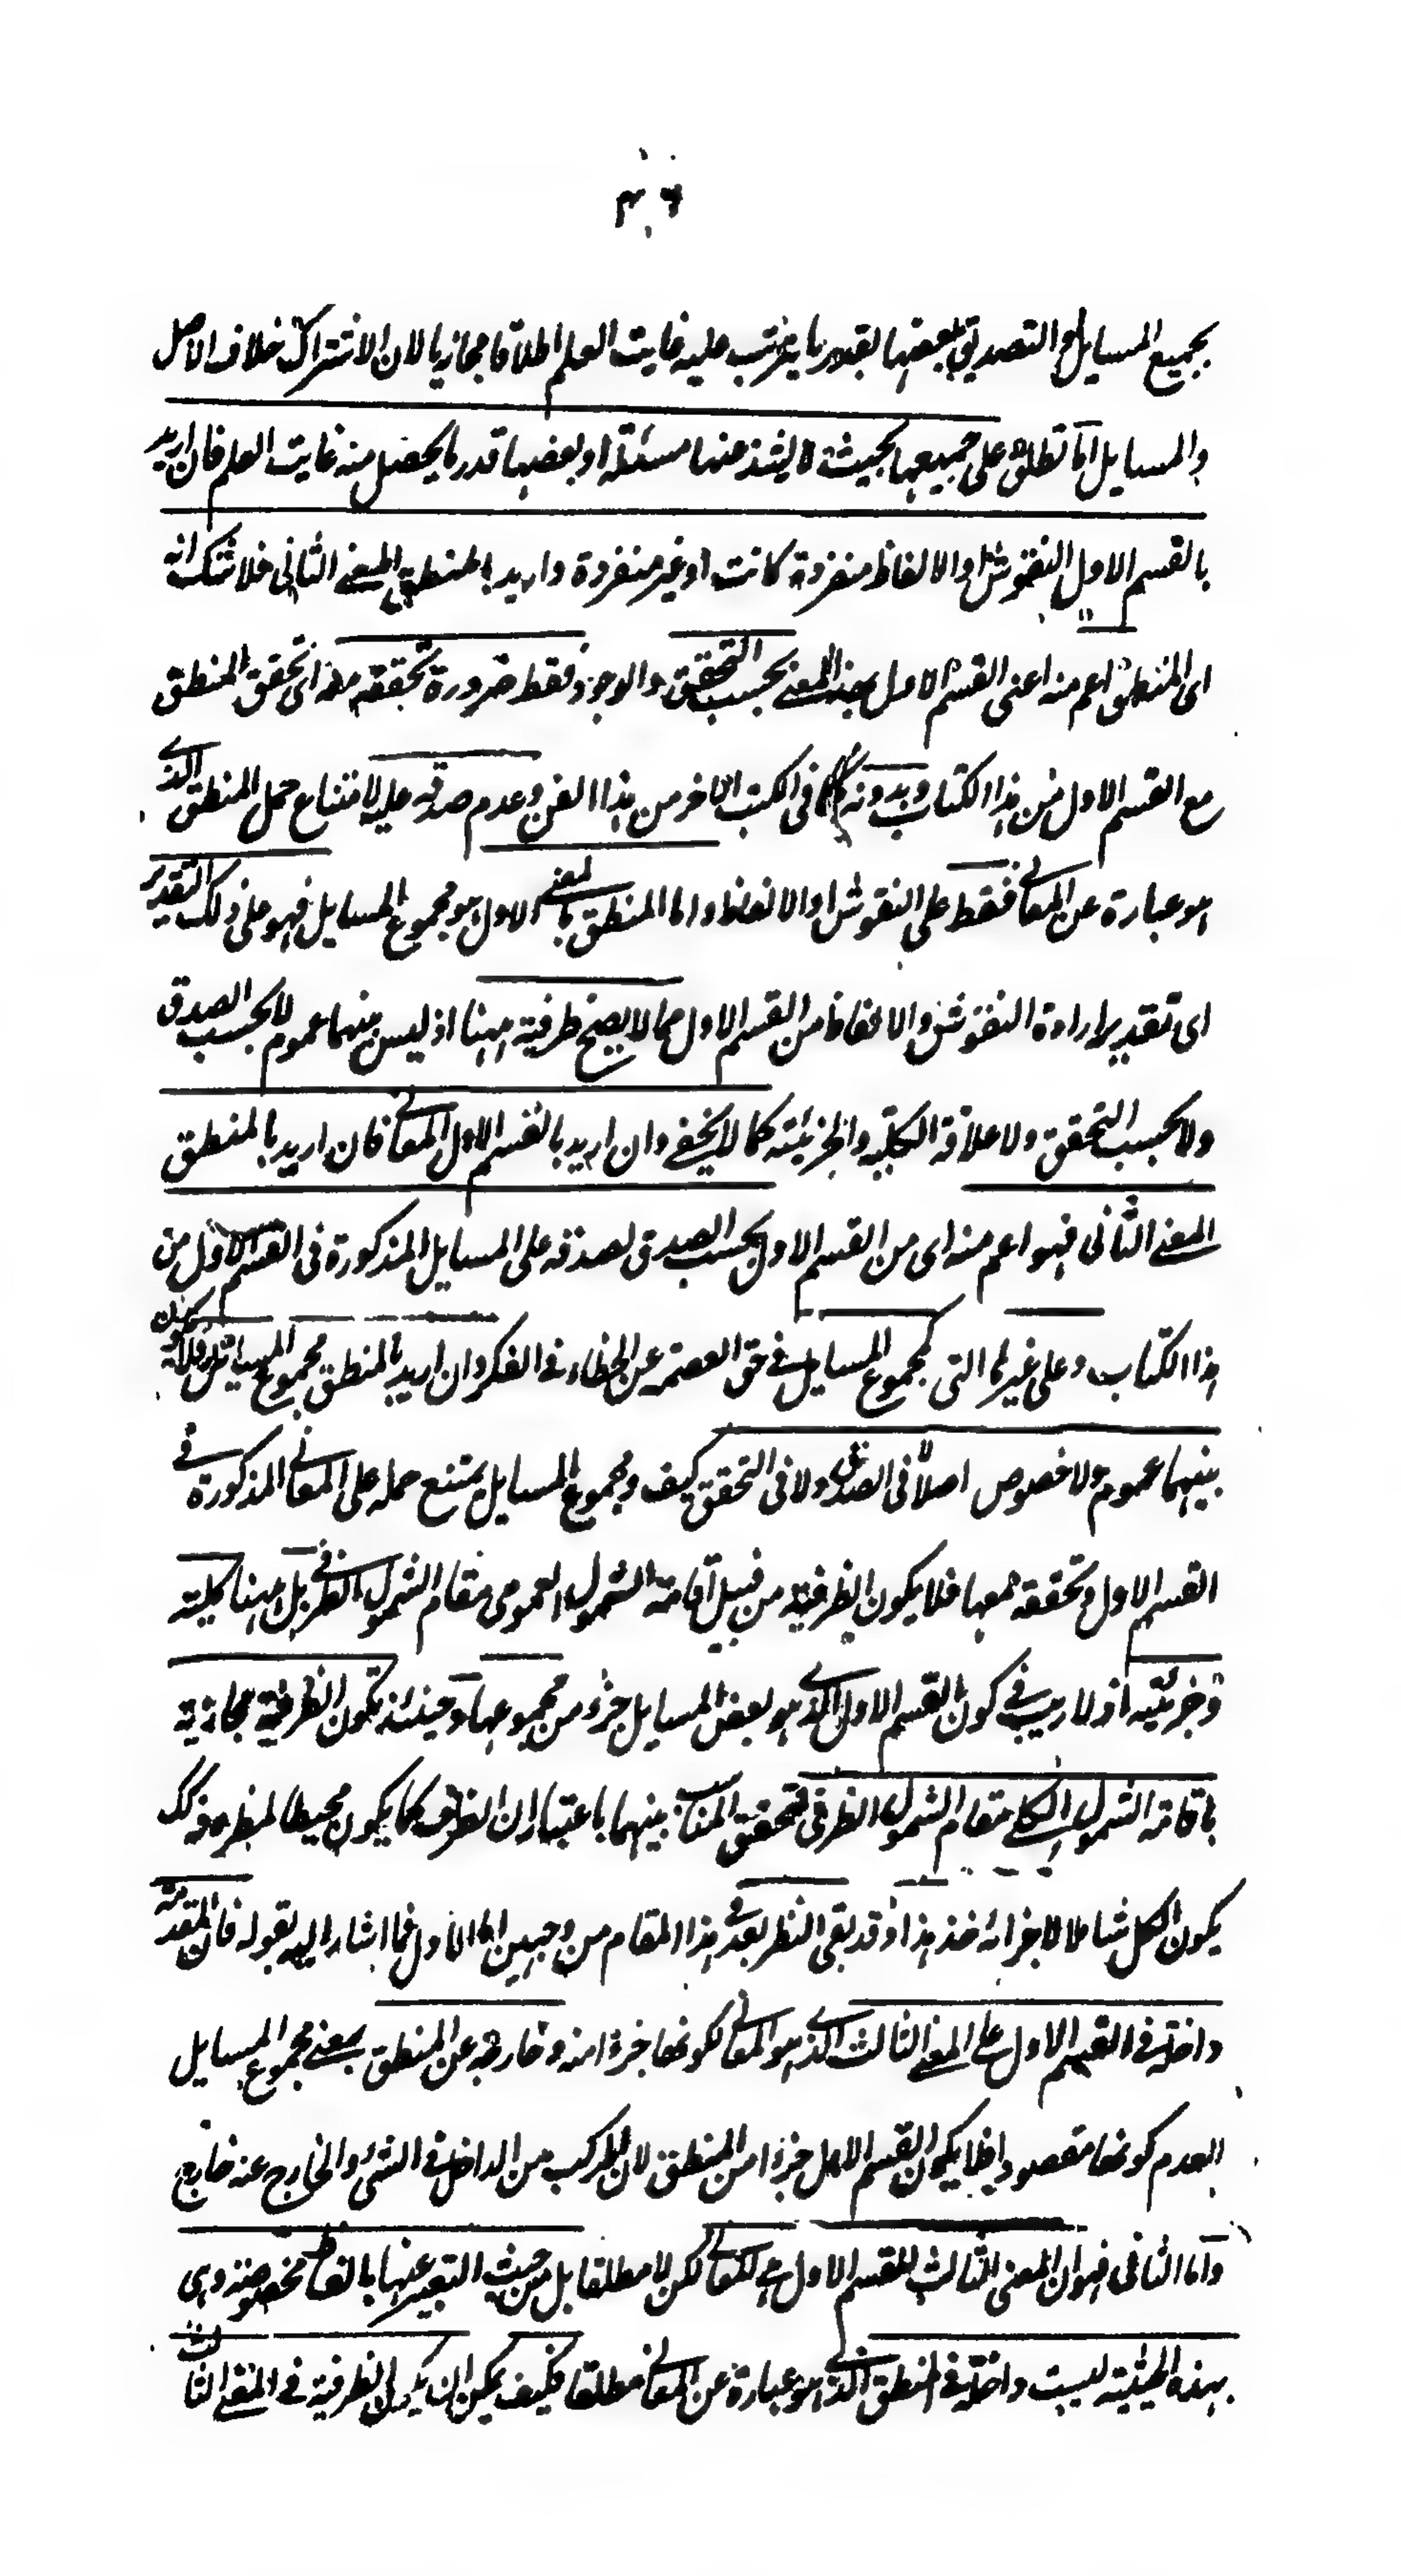 ۴۶
بجميع المسايل والتصديق ببعضها بقدر ما يترتب عليه غايت العلم اطلاقا مجازيا لان الاشتراك خلاف الاصل
والمسايل اما تطلق على جميعها بحيث لا يشذ عنها مسئلة او بعضها قدر ما يحصل منه غايت العلم فان اريد
بالقسم الاول النقوش او الالفاظ منفردة كانت او غير منفردة واريد بالمنطق المعنے الثانى فلا شك انه
اى المنطق اعم منه اعنى القسم الاول بهذا المعنے بحسب التحقق والوجود فقط ضرورة تحققه معه اى تحقق المنطق
مع القسم الاول من هذا الكتاب وبدونه كما فى الكتب الاخر من هذا الفن وعدم صدقه عليه لامتناع حمل المنطق الذے
هو عبارة عن المعانے فقط على النقوش او الالفاظ واما المنطق بالمعنے الاول هو مجموع المسايل فهو على ذلك التقدير
اى تقدير ارادة النقوش والالفاظ من القسم الاول مما لا يصح ظرفية ههنا اذ ليس بينهما عموم لا بحسب الصدق
ولا بحسب التحقق ولا علاقة الكلية والجزئية كما لا يخفے وان اريد بالقسم الاول المعانے فان اريد بالمنطق
المعنے الثانى فهو اعم منه اى من القسم الاول بحسب الصدق لصدقه على المسايل المذكورة فى القسم الاول من
هذا الكتاب وعلى غيرها التى لمجموع المسايل فے حق العصمة عن الخطاء فے الفكر وان اريد بالمنطق مجموع المسايل فلا يكون
بينهما عموم ولا خصوص اصلا لا فى الصدق ولا فى التحقق كيف ومجموع المسايل يمتنع حمله على المعانے المذكورة فے
القسم الاول وتحققه معها فلا يكون الظرفية من قبيل اقامة الشمول العمومى مقام الشمول الظرفے بل ههنا كلية
وجزئية اذ لا ريب فے كون القسم الاول الذے هو بعض المسايل جزء من مجموعها وحينئذ تكون الظرفية مجازية
باقامة الشمول الكلے مقام الشمول الظرفى لتحقق المناسبة بينهما باعتبار ان الظرف كما يكون محيطا لمظروفه كذلك
يكون الكل شاملا لاجزائه خذ هذا وقد بقى النظر بعد فے هذا المقام من وجهين اما الاول فما اشار اليه بقوله فان المقدمة
داخلة فے القسم الاول على المعنے الثالث الذے هو المعانے لكونها جزءا منه وخارجة عن المنطق بمعنے مجموع المسايل
لعدم كونها مقصودة فلا يكون القسم الاول جزءا من المنطق لان المركب من الداخل فے الشئ والخارج عنه خارج
واما الثانى فهو ان المعنى الثالث للقسم الاول هے المعانے لكن لا مطلقا بل من حيث التعبير عنها بالفاظ مخصوصة وهى
بهذه الحيثية ليست داخلة فے المنطق الذے هو عبارة عن المعانے مطلقا فكيف يمكن ان يكون الظرفية فے المعنے الثالث